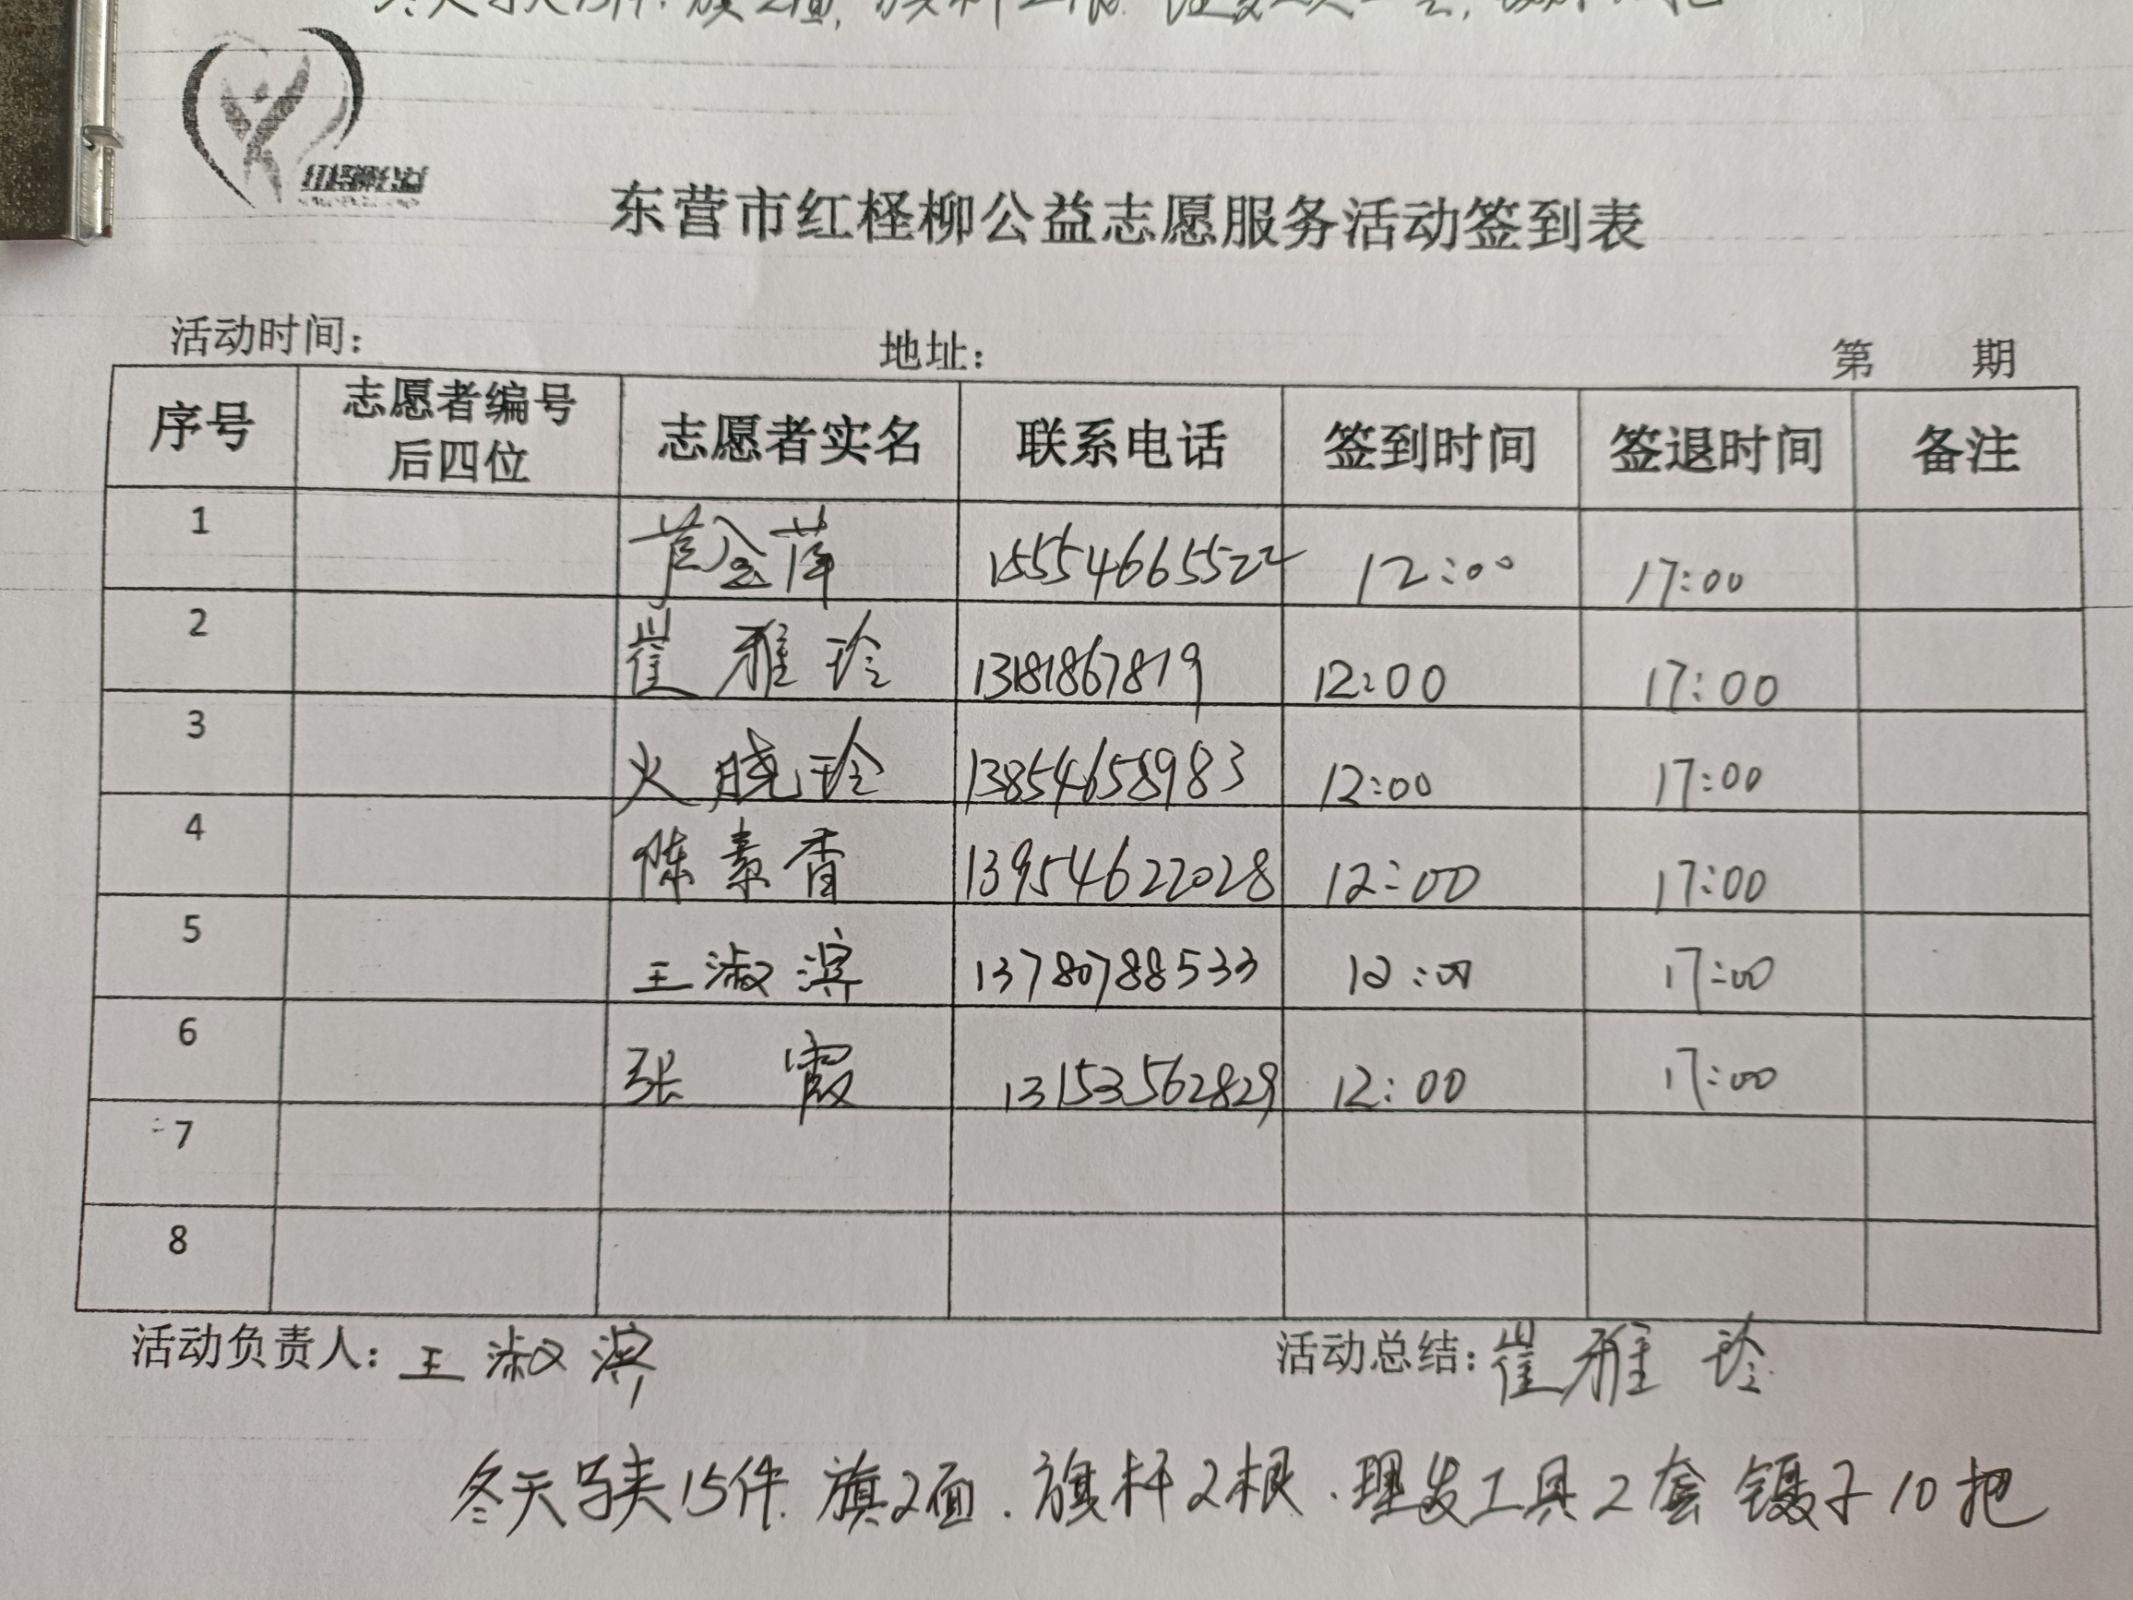 红柽柳公益
东营市红柽柳公益志愿服务活动签到表
活动时间: 地址: 第 期
序号 志愿者编号后四位 志愿者实名 联系电话 签到时间 签退时间 备注
1 15554665522 12:00 17:00
2 崔雅玲 13181867819 12:00 17:00
3 火晓玲 13854658983 12:00 17:00
4 陈素香 13954622028 12:00 17:00
5 王淑滨 13780788533 12:00 17:00
6 张霞 13153562829 12:00 17:00
7
8
活动负责人: 王淑滨 活动总结: 崔雅玲
冬天马夹15件.旗2面.旗杆2根.理发工具2套 镊子10把